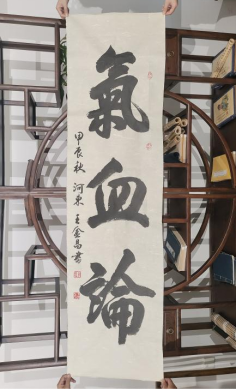 氣血論
甲辰秋 河東 王金昌書